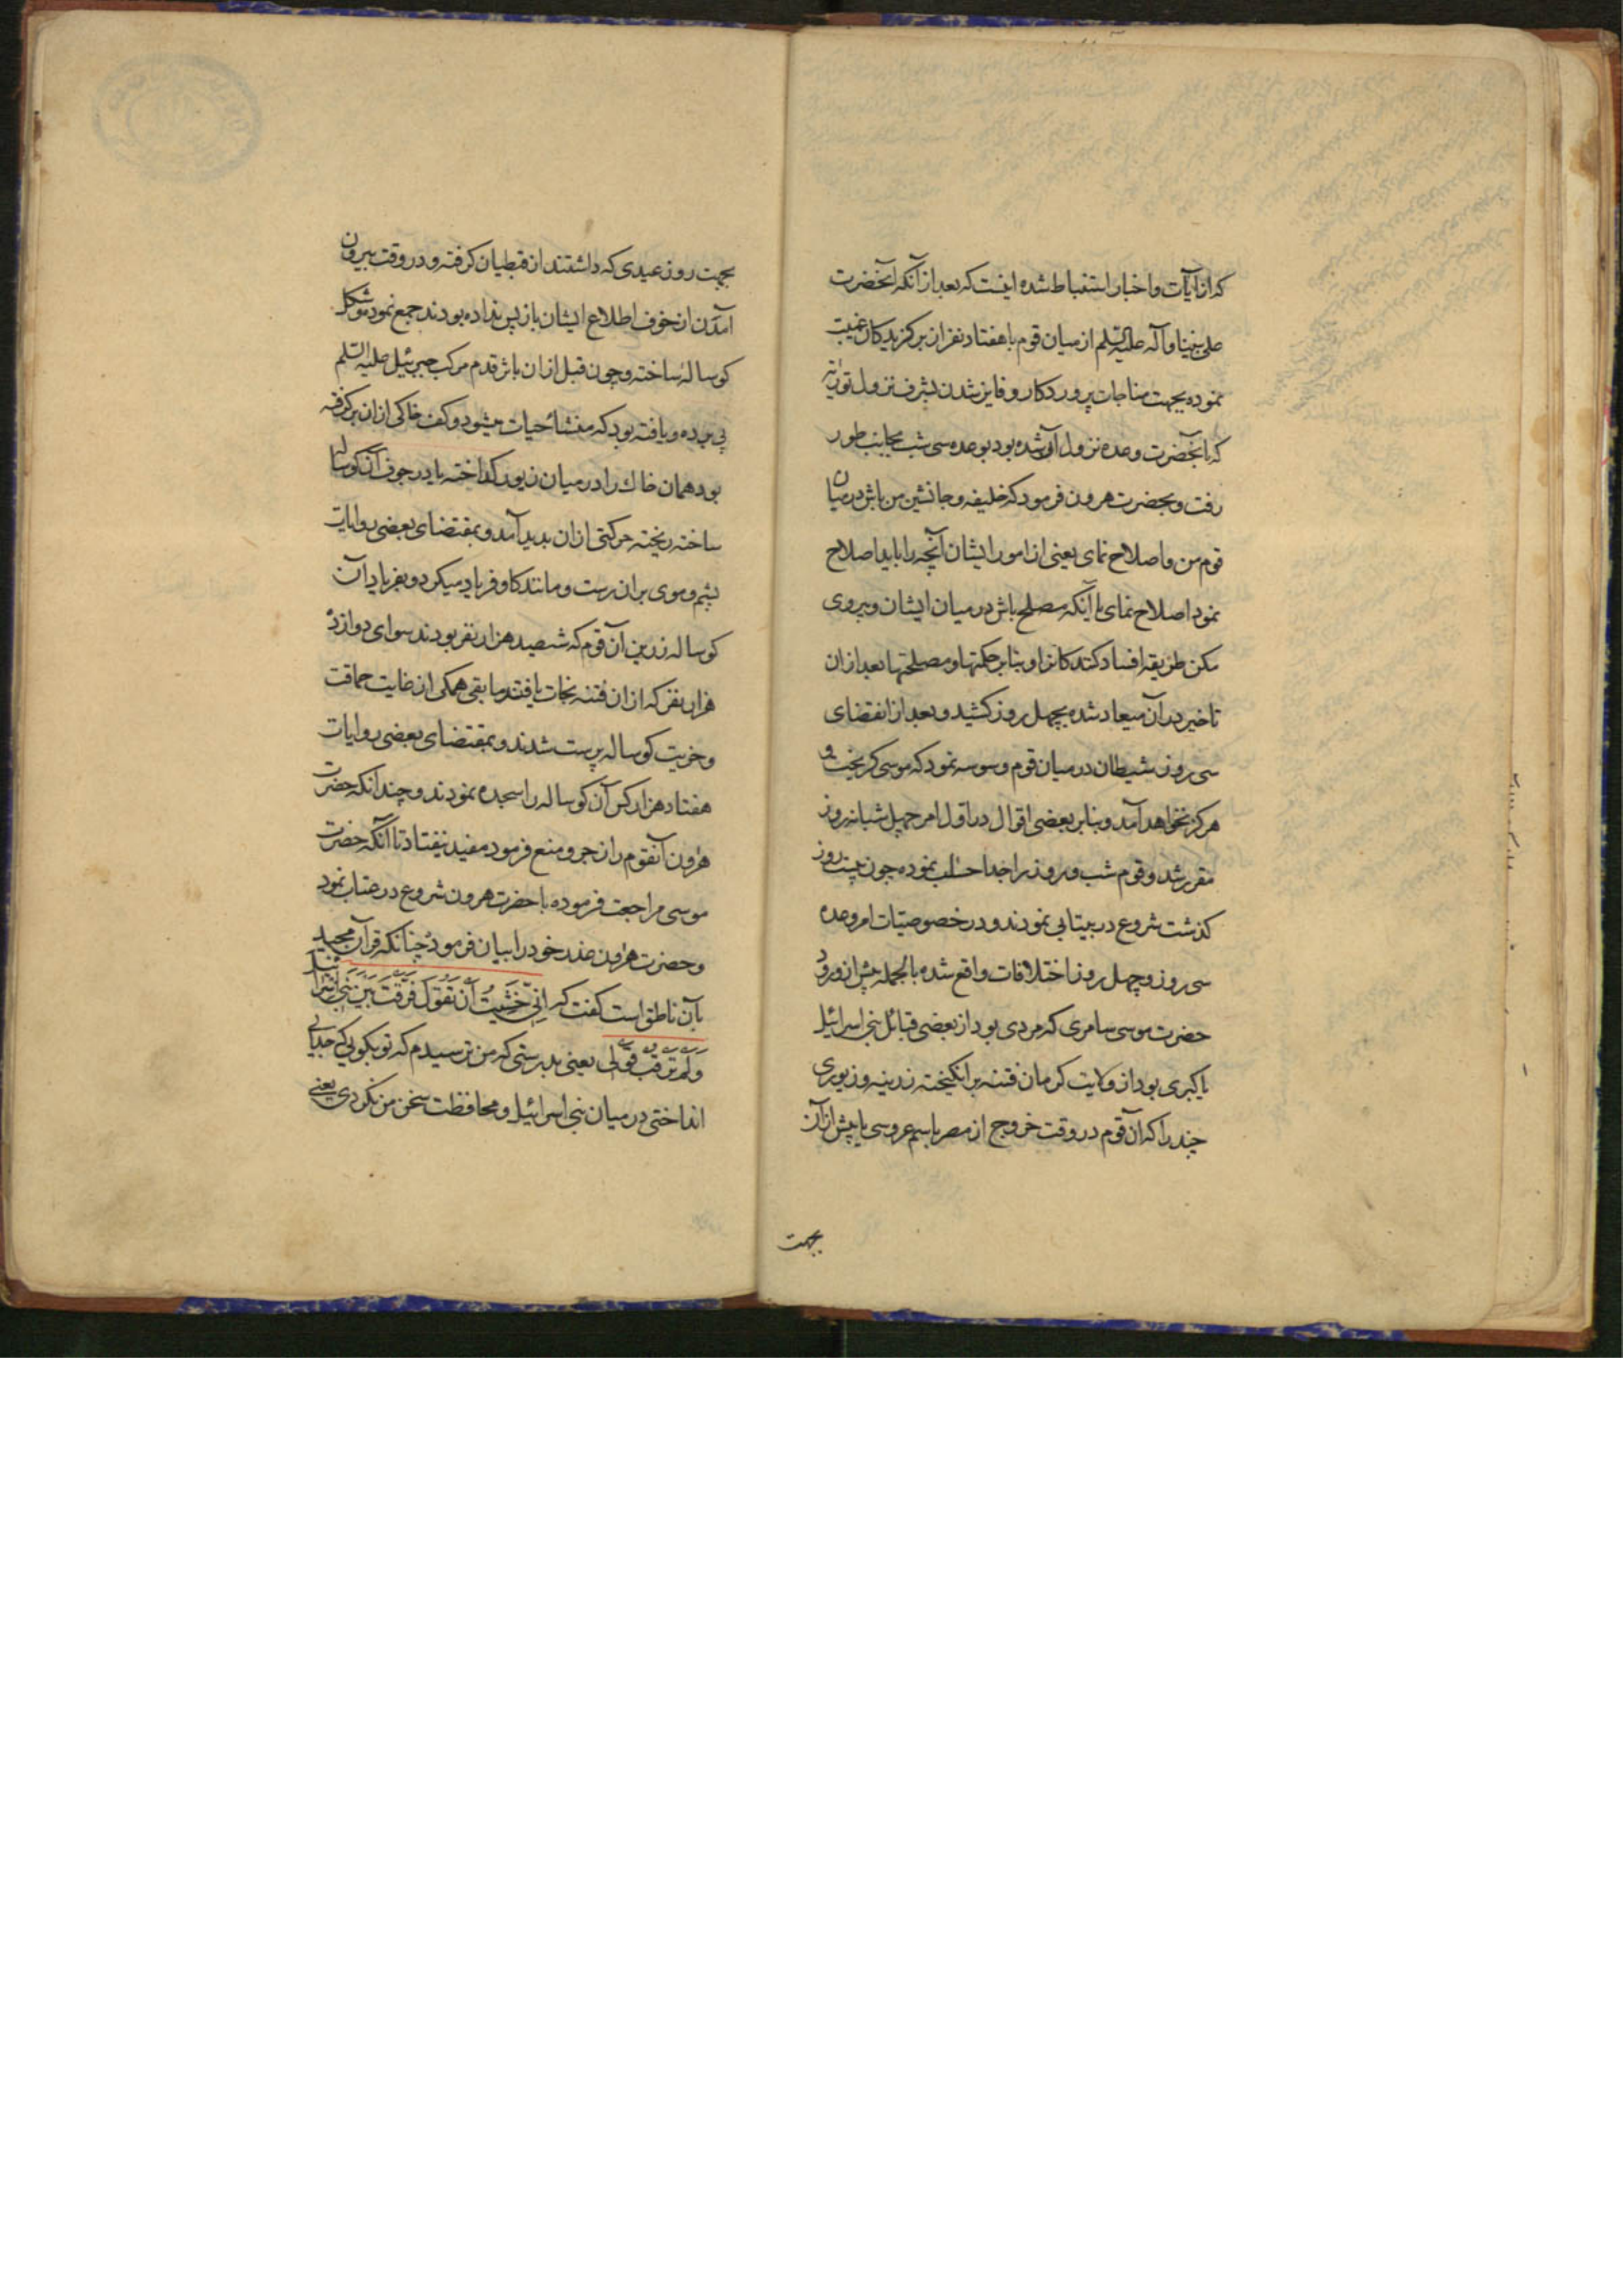 که از آیات و اخبار استنباط شده اینست که بعد از آنکه آنحضرت
علی نبینا و آله علیه السلم از میان قوم با هفتاد نفر از برکزیدکان غیبت
نموده بجهت مناجات پروردکار و فایز شدن بشرف نزول توریة
که بآنحضرت وعده نزول آن شده بود بوعده سی شب بجانب طور
رفت و بحضرت هرون فرمود که خلیفه و جانشین من باش در میان
قوم من و اصلاح نمای یعنی از امور ایشان آنچه را باید اصلاح
نمود اصلاح نمای یا آنکه مصلح باش در میان ایشان و پیروی
مکن طریقه افساد کنندکانرا و بنابر حکمتها و مصلحتها بعد از ان
تاخیر در آن میعاد شده بچهل روز کشید و بعد از انقضای
سی روز شیطان در میان قوم وسوسه نمود که موسی کریخت و
هرکز نخواهد آمد و بنابر بعضی اقوال در اول امر چهل شبانه روز
مقرر شد و قوم شب و روز را جدا حساب نموده چون بیست روز
کذشت شروع در بیتابی نمودند و در خصوصیات امر وعده
سی روز و چهل روز اختلافات واقع شده بالجمله پیش از ورود
حضرت موسی سامری که مردی بود از بعضی قبائل بنی اسرائیل
یا کبری بود از ولایت کرمان فتنه برانکیخته زرینه و زیوری
چند را که آن قوم در وقت خروج از مصر باسم عروسی یا پیش از آن
بجهت
بجهت روز عیدی که داشتند از قبطیان کرفته و در وقت بیرون
آمدن از خوف اطلاع ایشان باز پس نداده بودند جمع نمود بشکل
کوساله ساخته و چون قبل از ان باثر قدم مرکب جبرئیل علیه السلم
پی برده و یافته بود که منشائ حیات میشود و کف خاکی از ان برکرفته
بود همان خاک را در میان زیور کداخته یا در جوف آن کوساله
ساخته ریخته حرکتی از ان بدید آمد و بمقتضای بعضی روایات
پشم و موی بران رست و مانند کاو فریاد میکرد و بفریاد آن
کوساله زرین آن قوم که ششصد هزار نفر بودند سوای دوازده
هزار نفر که از ان فتنه نجات یافتند ما بقی همکی از غایت حماقت
و خریت کوساله پرست شدند و بمقتضای بعضی روایات
هفتاد هزار کس آن کوساله را سجده نمودند و چندانکه حضرت
هرون آنقوم را زجر و منع فرمود مفید نیفتاد تا آنکه حضرت
موسی مراجعت فرموده با حضرت هرون شروع در عتاب نمود
و حضرت هرون عذر خود را بیان فرمود چنانکه قرآن مجید
بآن ناطق است کفت که اِنِّی خَشِیتُ اَن تَقُولَ فَرَّقتَ بَینَ بَنِی اِسرائیلَ
وَلَم تَرقُب قَولِی یعنی بدرستی که من ترسیدم که تو بکویی که جدایی
انداختی در میان بنی اسرائیل و محافظت سخن من نکردی یعنی